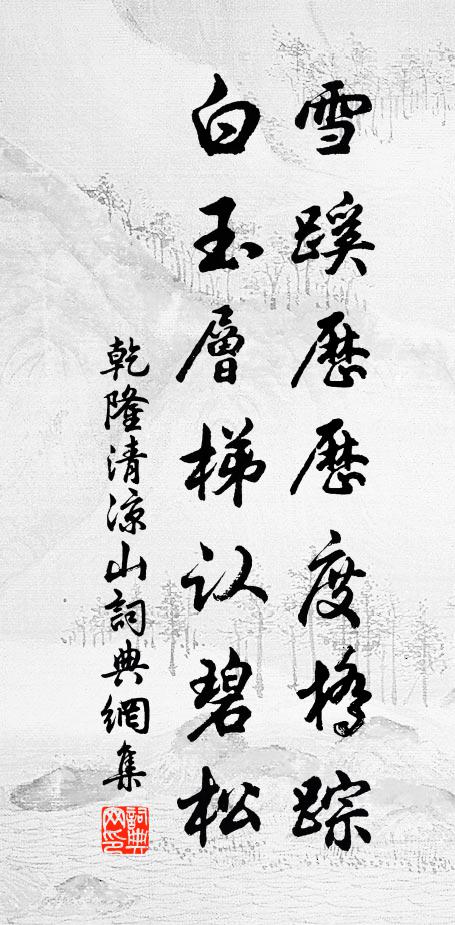 雪蹊歷歷度橋踪
白玉層梯认碧松
乾隆清凉山詞典網集
詞典网印